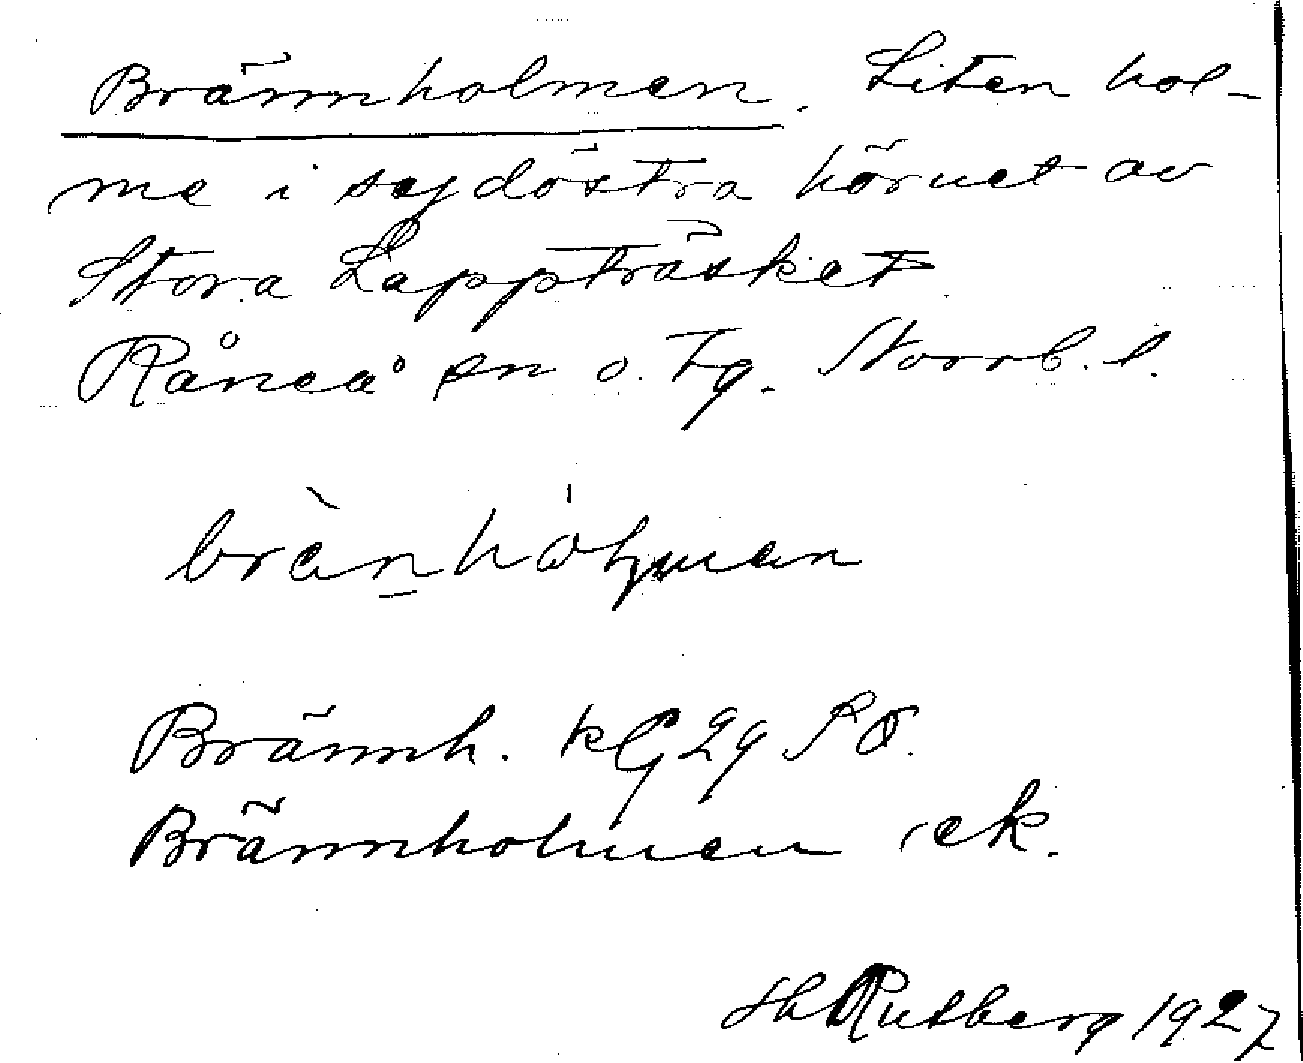 Brännholmen. Liten hol-
me i sydöstra hörnet av
Stora Lappträsket
Råneå sn o. tg. Norrb. l.
brànhólman
Brännh. kG29 SO.
Brännholmen ek.
Hl Rutberg 1927